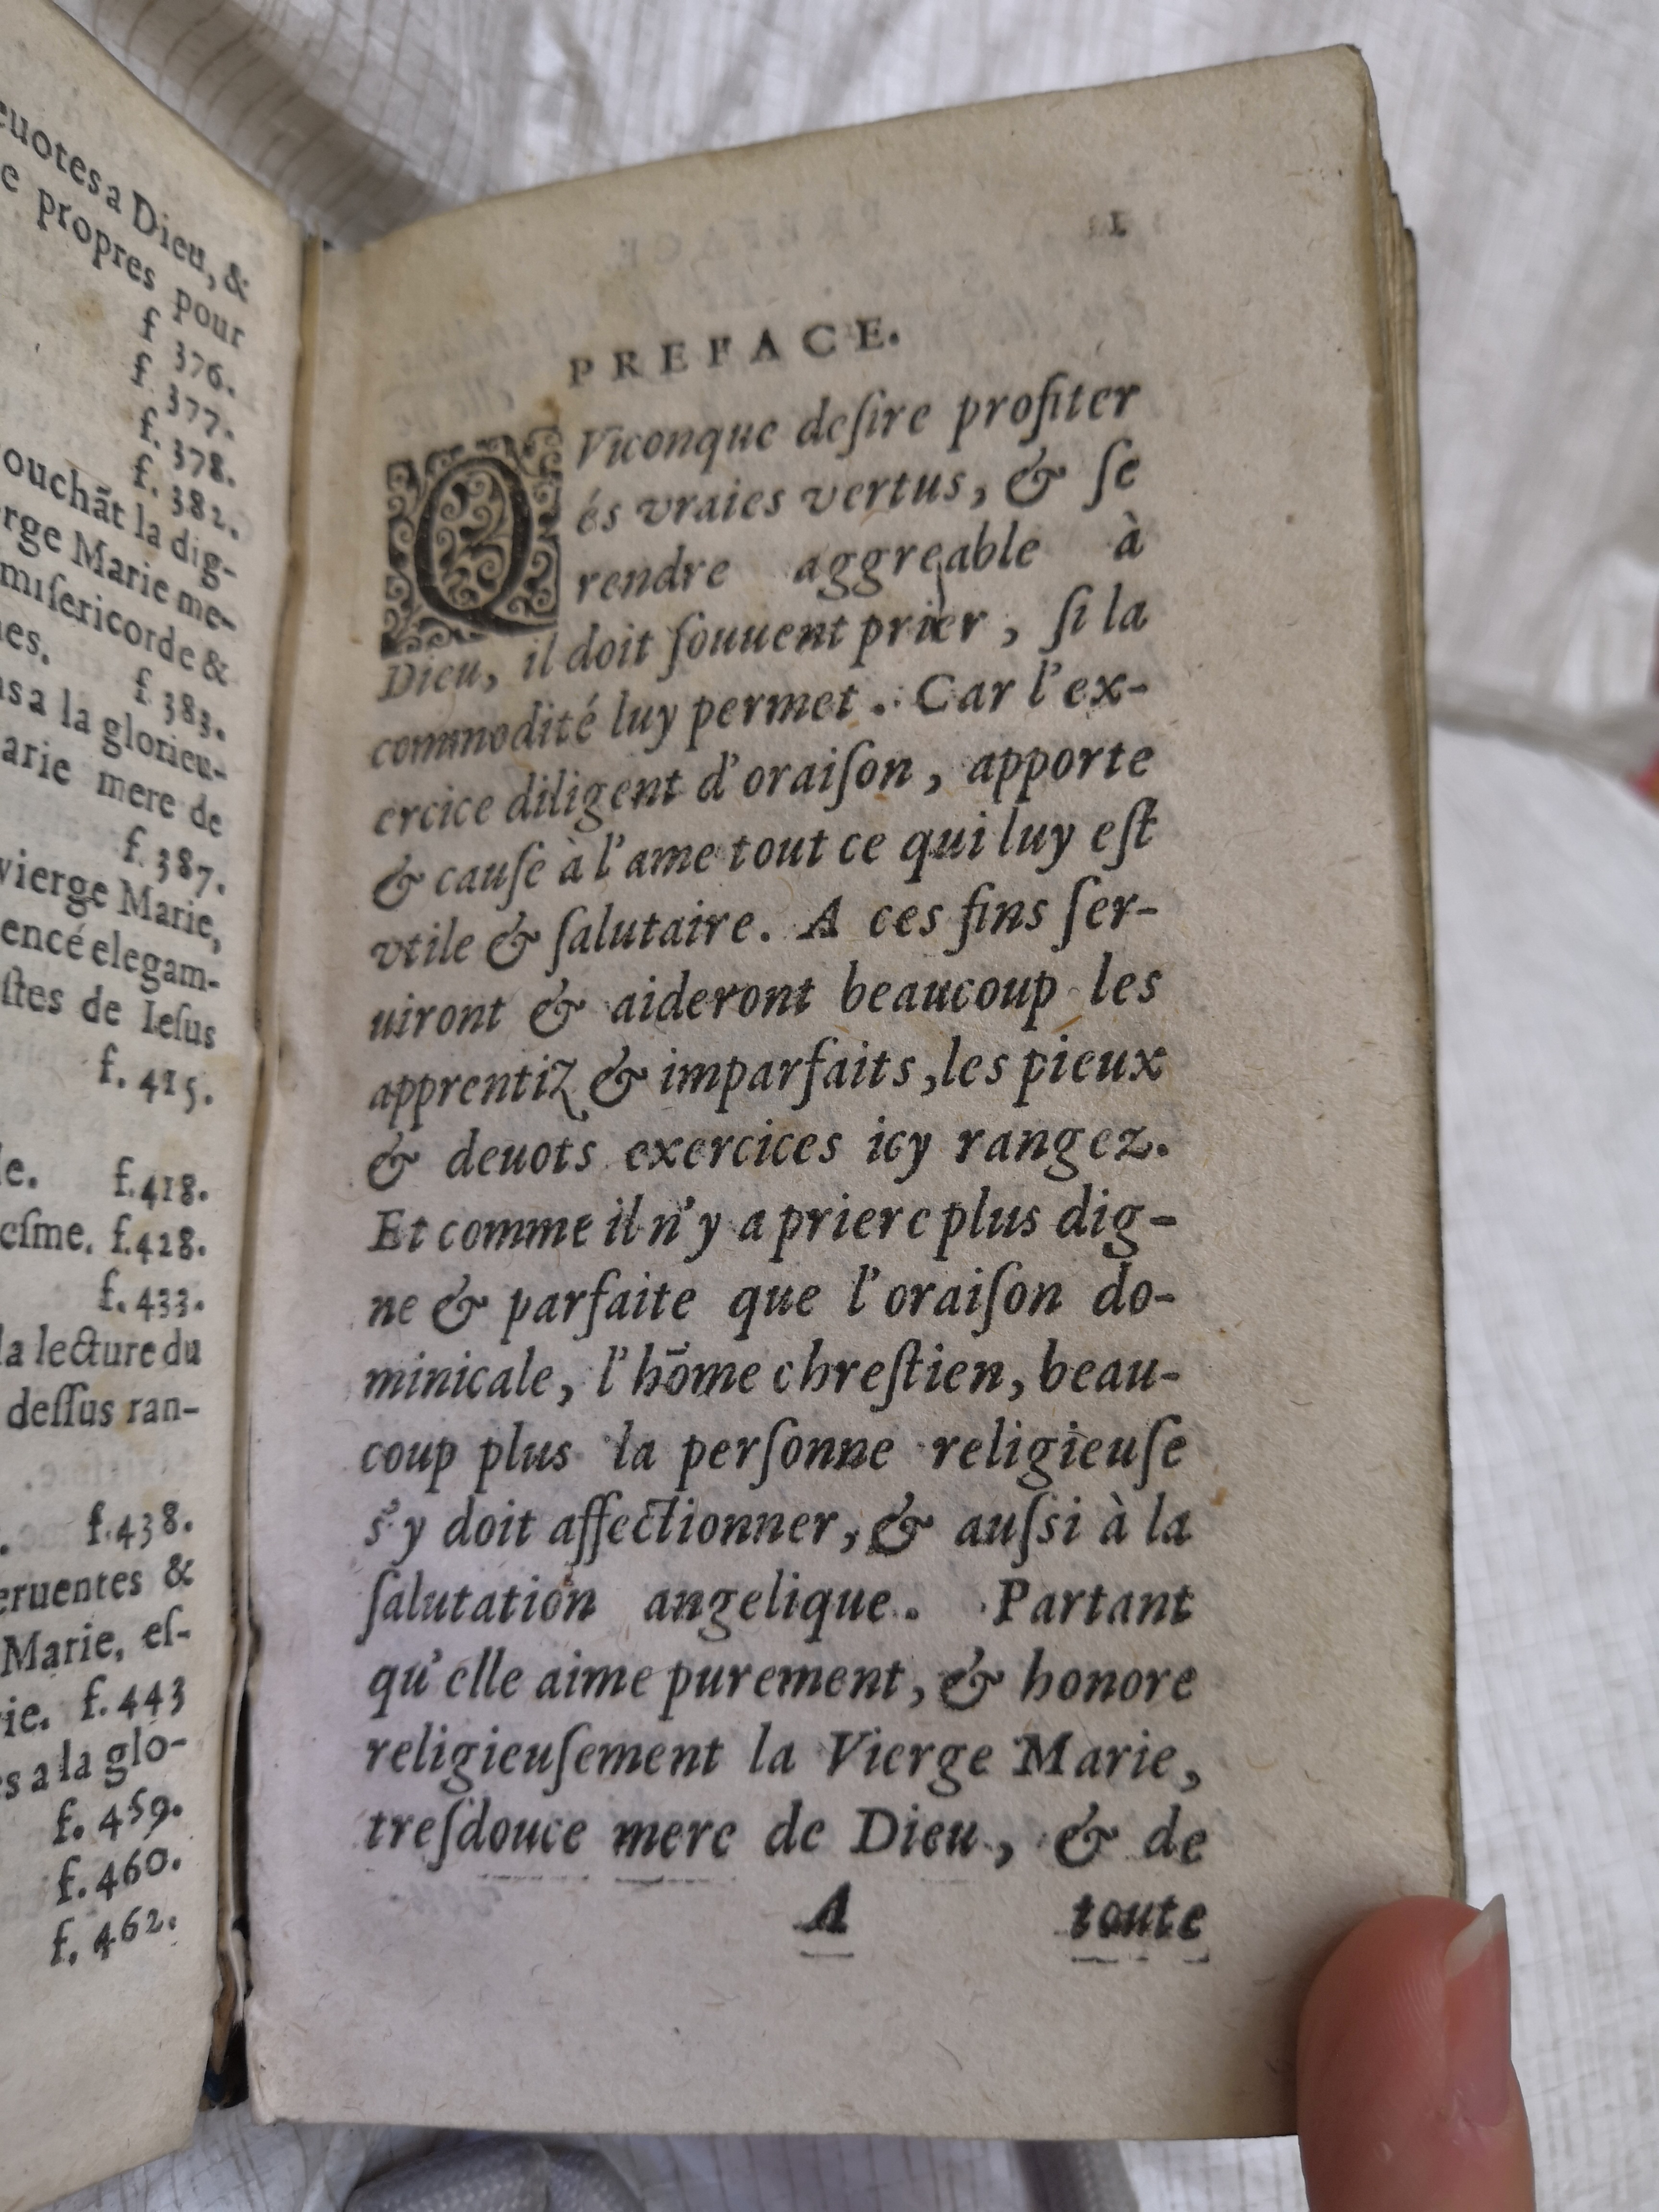 euotes a Dieu, &
e propres pour
f 376.
f. 377.
f. 378.
f. 382.
ouchāt la dig-
rge Marie me-
miſericorde &
nes. f. 383.
ns a la glorieu-
arie mere de
f. 387.
vierge Marie,
encé elegam-
ſtes de Ieſus
f. 415.
le. f. 418.
cſme. f. 428.
f. 433.
la lecture du
deſſus ran-
f. 438.
eruentes &
Marie, eſ-
ie. f. 443
s a la glo-
f. 459.
f. 460.
f. 462.
1
PREFACE.
QViconque deſire profiter
és vraies vertus, & ſe
rendre aggreable à
Dieu, il doit ſouuent prier, ſi la
commodité luy permet. Car l'ex-
ercice diligent d'oraiſon, apporte
& cauſe à l'ame tout ce qui luy eſt
vtile & ſalutaire. A ces fins ſer-
uiront & aideront beaucoup les
apprentiz & imparfaits, les pieux
& deuots exercices icy rangez.
Et comme il n'y a priere plus dig-
ne & parfaite que l'oraiſon do-
minicale, l'hōme chreſtien, beau-
coup plus la perſonne religieuſe
s'y doit affectionner, & auſsi à la
ſalutation angelique. Partant
qu'elle aime purement, & honore
religieuſement la Vierge Marie,
treſdouce mere de Dieu, & de
A toute